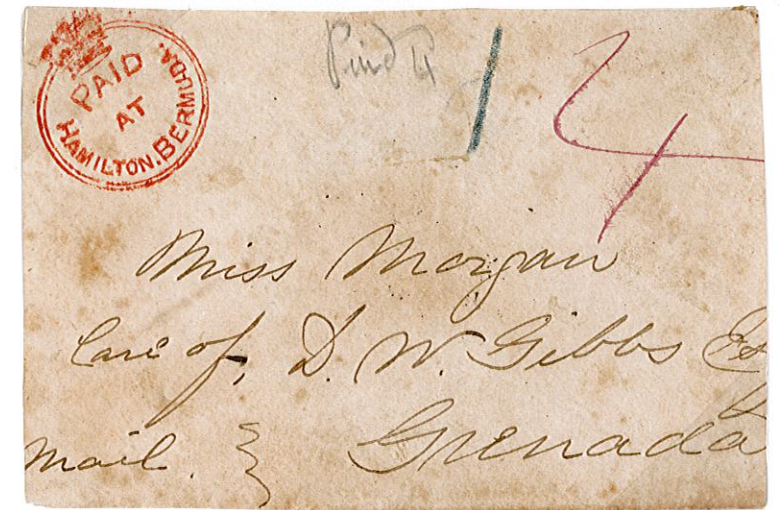 PAID
AT
HAMILTON. BERMUDA.
Paid 4
1 4
Miss Morgan
Care of, D. W. Gibbs Esq
Mail. Grenada